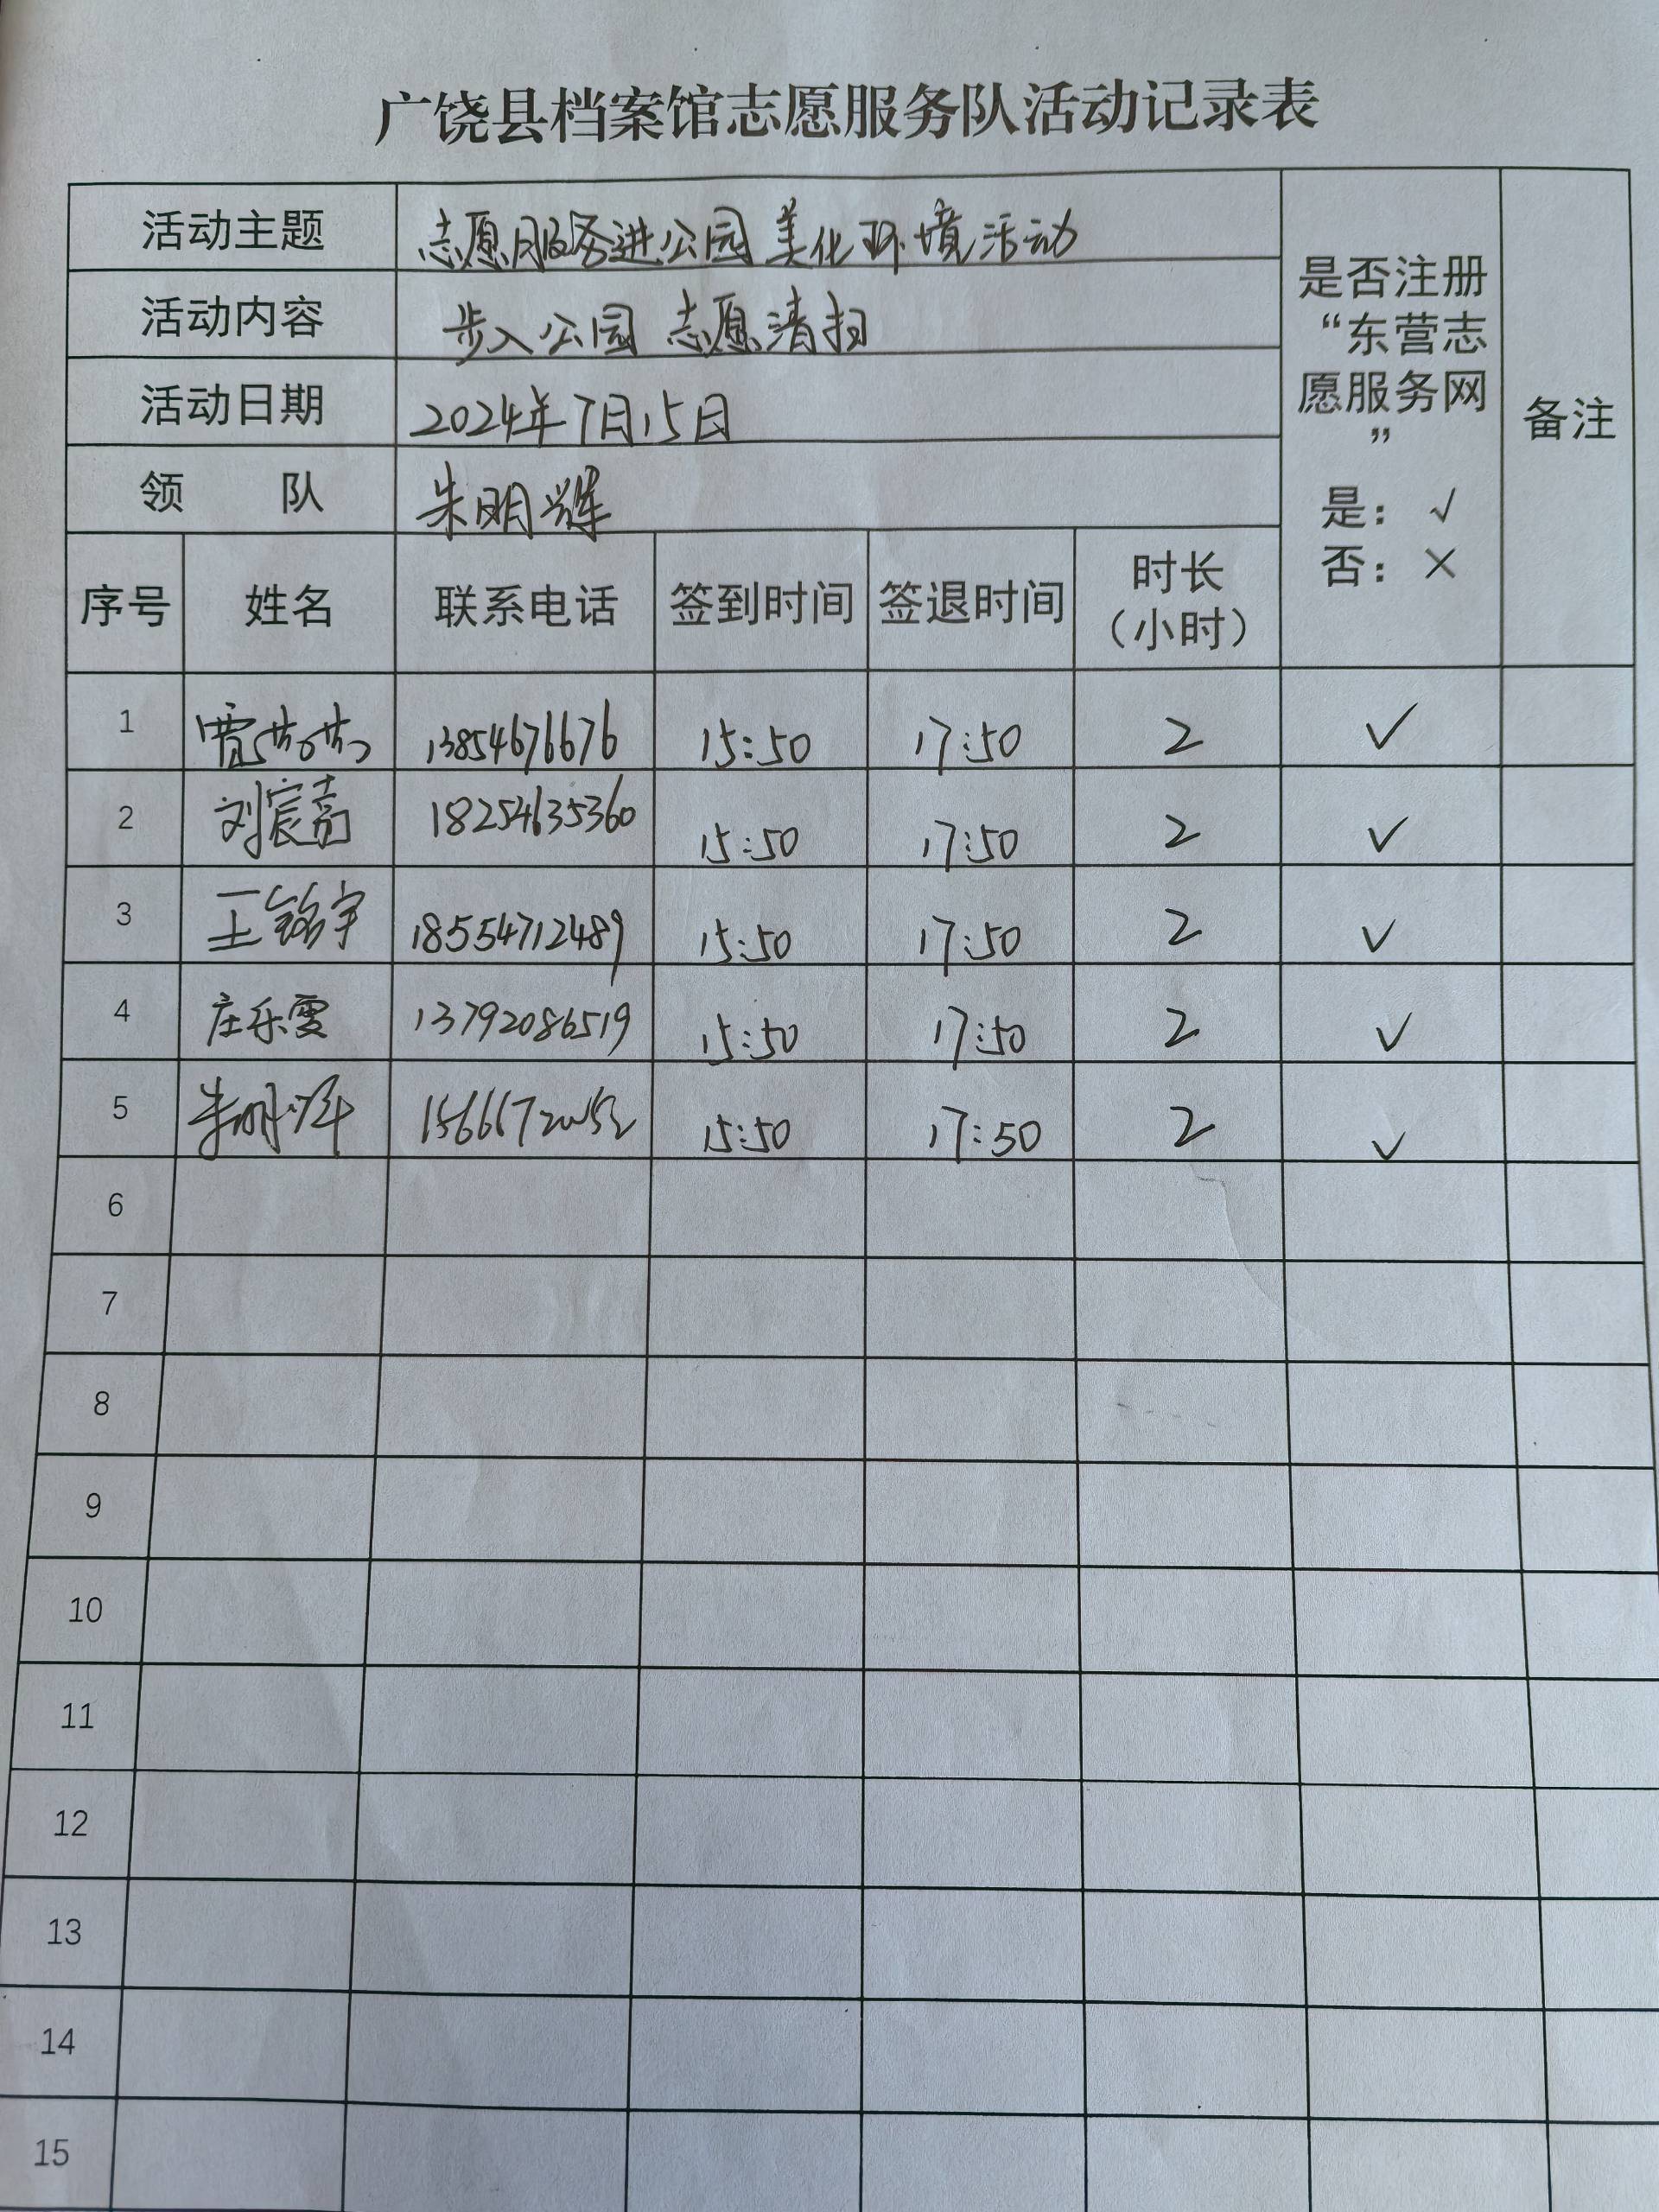 广饶县档案馆志愿服务队活动记录表
活动主题 志愿服务进公园 美化环境活动
活动内容 步入公园 志愿清扫
活动日期 2024年7月15日
领 队 朱明辉
是否注册
“东营志
愿服务网
”
是：√
否：×
备注
序号 姓名 联系电话 签到时间 签退时间 时长（小时）
1 贾芳芳 13854676676 15:50 17:50 2 √
2 刘宸嘉 18254635360 15:50 17:50 2 √
3 王铭宇 18554712489 15:50 17:50 2 √
4 庄乐雯 13792086519 15:50 17:50 2 √
5 朱明辉 15:50 17:50 2 √
6
7
8
9
10
11
12
13
14
15